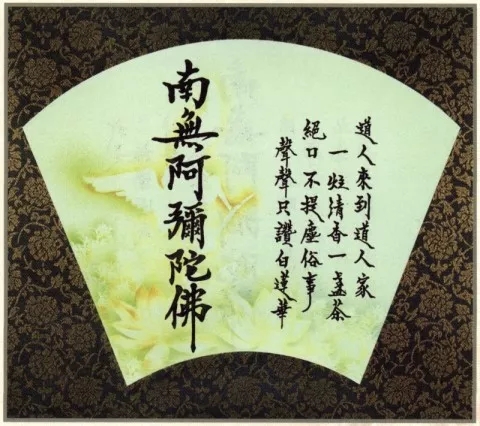 道人來到道人家
一炷清香一盞茶
絕口不提塵俗事
聲聲只讚白蓮華
南無阿彌陀佛